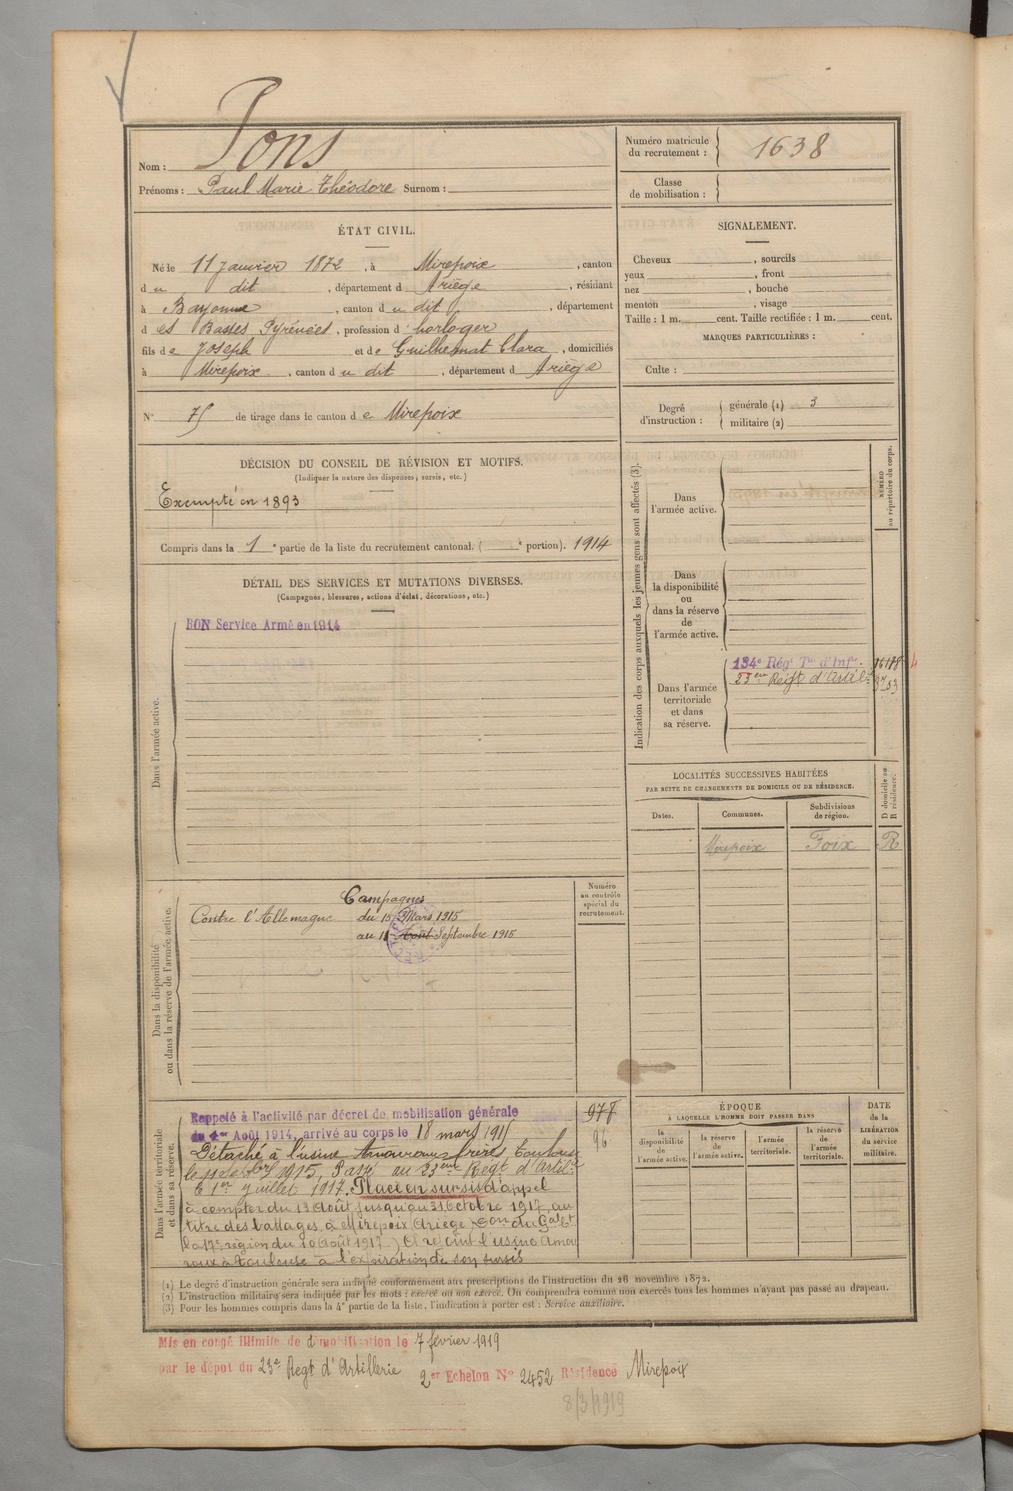 Nom : Pons
Prénoms : Paul Marie Théodore Surnom :
Numéro matricule du recrutement : 1638
Classe de mobilisation :
ÉTAT CIVIL.
Né le 11 janvier 1872, à Mirepoix, canton
du dit, département d Ariège, résidant
à Bayonne, canton du dit, département
des Basses Pyrénées, profession d'horloger
fils de Joseph et de Guilhemat Clara, domiciliés
à Mirepoix, canton du dit, département d Ariège
N° 75 de tirage dans le canton de Mirepoix
SIGNALEMENT.
Cheveux , sourcils
yeux , front
nez , bouche
menton , visage
Taille : 1 m. cent. Taille rectifiée : 1 m. cent.
MARQUES PARTICULIÈRES :
Culte :
Degré d'instruction : générale (1) 3
militaire (2)
DÉCISION DU CONSEIL DE RÉVISION ET MOTIFS.
(Indiquer la nature des dispenses, sursis, etc.)
Exempté en 1893
Compris dans la 1e partie de la liste du recrutement cantonal. ( e portion). 1914
DÉTAIL DES SERVICES ET MUTATIONS DIVERSES.
(Campagnes, blessures, actions d'éclat, décorations, etc.)
Dans l'armée active.
BON Service Armé en 1914
Indication des corps auxquels les jeunes gens sont affectés (3).
NUMÉRO au répertoire du corps.
Dans l'armée active.
Dans la disponibilité ou dans la réserve de l'armée active.
Dans l'armée territoriale et dans sa réserve.
134e Régt Tal d'Infie.
23eme Regt d'Artil
LOCALITÉS SUCCESSIVES HABITÉES
PAR SUITE DE CHANGEMENTS DE DOMICILE OU DE RÉSIDENCE.
Dates. Communes. Subdivisions de région. D domicile ou R résidence.
Mirepoix Foix R
Dans la disponibilité ou dans la réserve de l'armée active.
Numéro au contrôle spécial du recrutement.
Campagnes
Contre l'Allemagne du 18 Mars 1915
au 11 Août Septembre 1915
Dans l'armée territoriale et dans sa réserve.
Rappelé à l'activité par décret de mobilisation générale
du 1er Août 1914, arrivé au corps le 18 mars 1915
Détaché à l'usine Amouroux frères, Toulouse
le 11 septbre 1915, Passé au 23eme Regt d'Artil
le 1er Juillet 1917. Placé en sursis d'appel
à compter du 13 Août jusqu'au 31 octobre 1917 au
titre des battages, à Mirepoix Ariège
la 17e région du 10 Août 1917) et rejoint l'usine Amou
roux à Toulouse à l'expiration de son sursis
978
96
ÉPOQUE
À LAQUELLE L'HOMME DOIT PASSER DANS
la disponibilité de l'armée active. la réserve de l'armée active. l'armée territoriale. la réserve de l'armée territoriale.
DATE de la LIBÉRATION du service militaire.
(1) Le degré d'instruction générale sera indiqué conformément aux prescriptions de l'instruction du 26 novembre 1872.
(2) L'instruction militaire sera indiquée par les mots : exercé ou non exercé. On comprendra comme non exercés tous les hommes n'ayant pas passé au drapeau.
(3) Pour les hommes compris dans la 4e partie de la liste, l'indication à porter est : Service auxiliaire.
Mis en congé illimité de démobilisation le 7 février 1919
par le dépot du 23e Regt d'Artillerie 2er Echelon N° 2452 Résidence Mirepoix
8/3/1919